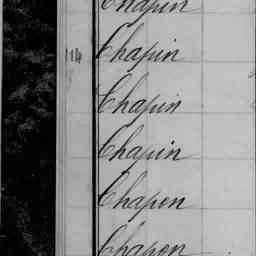 Chapin
114 Chapin
Chapin
Chapin
Chapen
Chapen